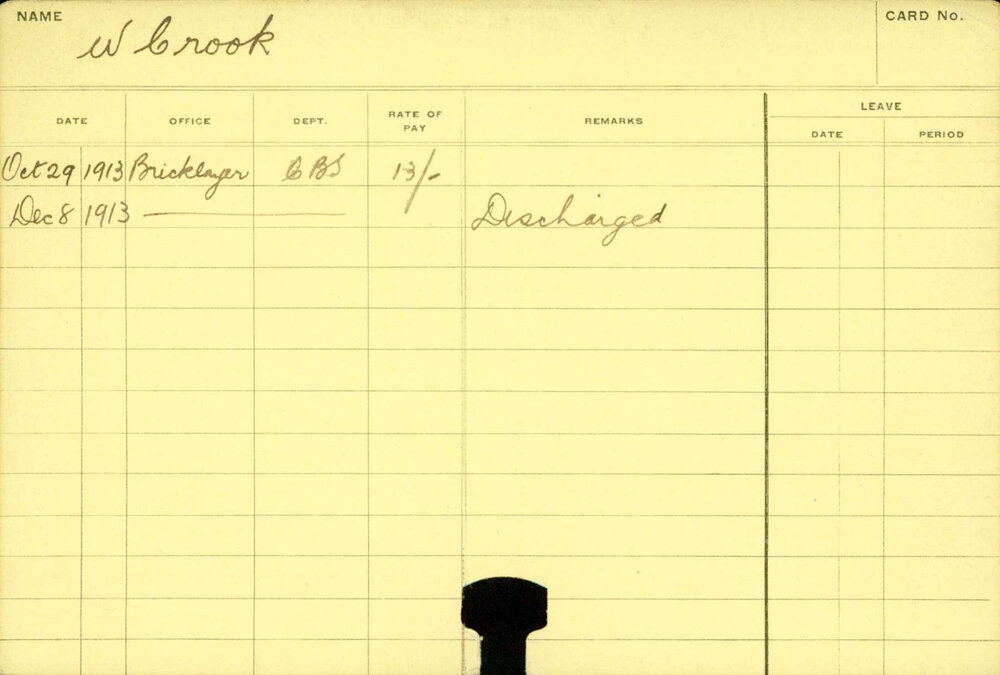 NAME W Crook CARD No.
LEAVE
DATE OFFICE DEPT. RATE OF PAY REMARKS DATE PERIOD
Oct 29 1913 Bricklayer CBS 13/-
Dec 8 1913 Discharged